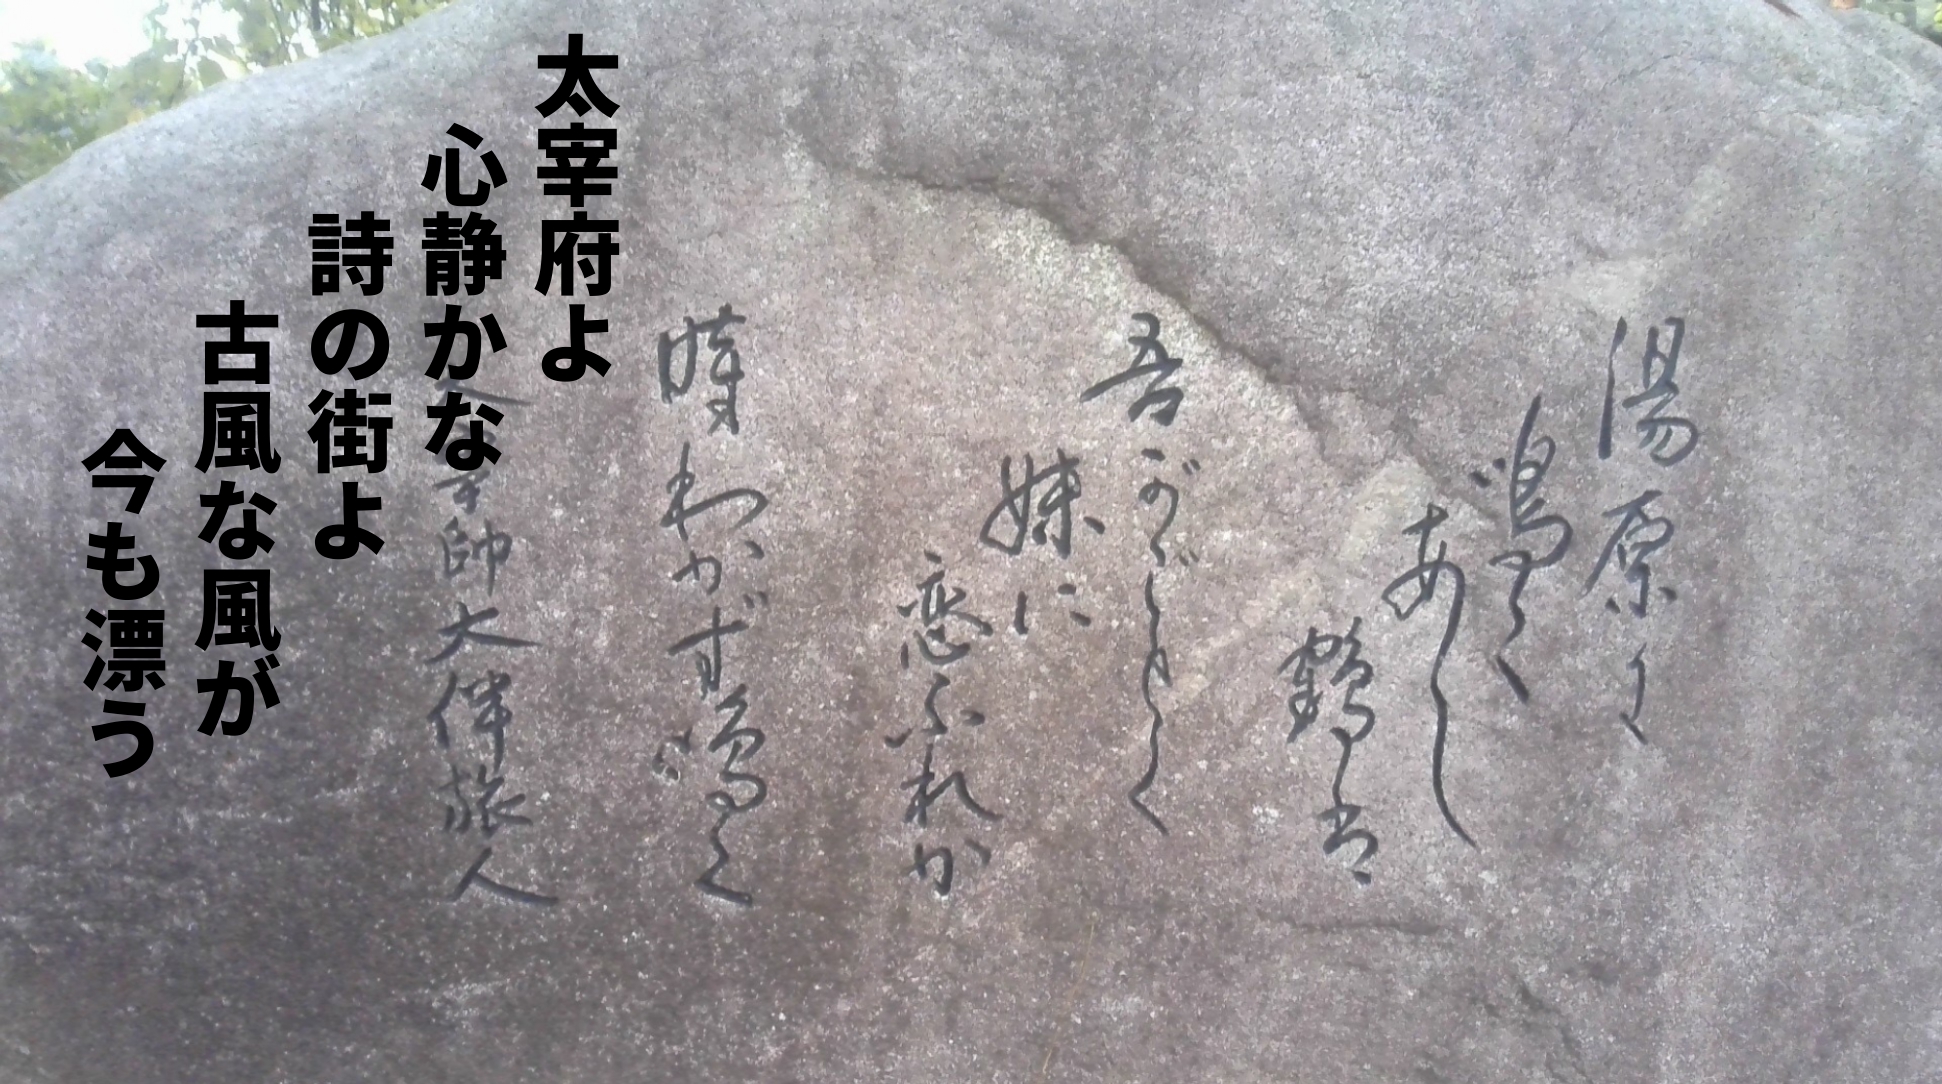 湯原に
鳴く
あし
鶴は
吾がごとく
妹に
恋ふれか
時わかず鳴く
大宰帥大伴旅人
太宰府よ
心静かな
詩の街よ
古風な風が
今も漂う